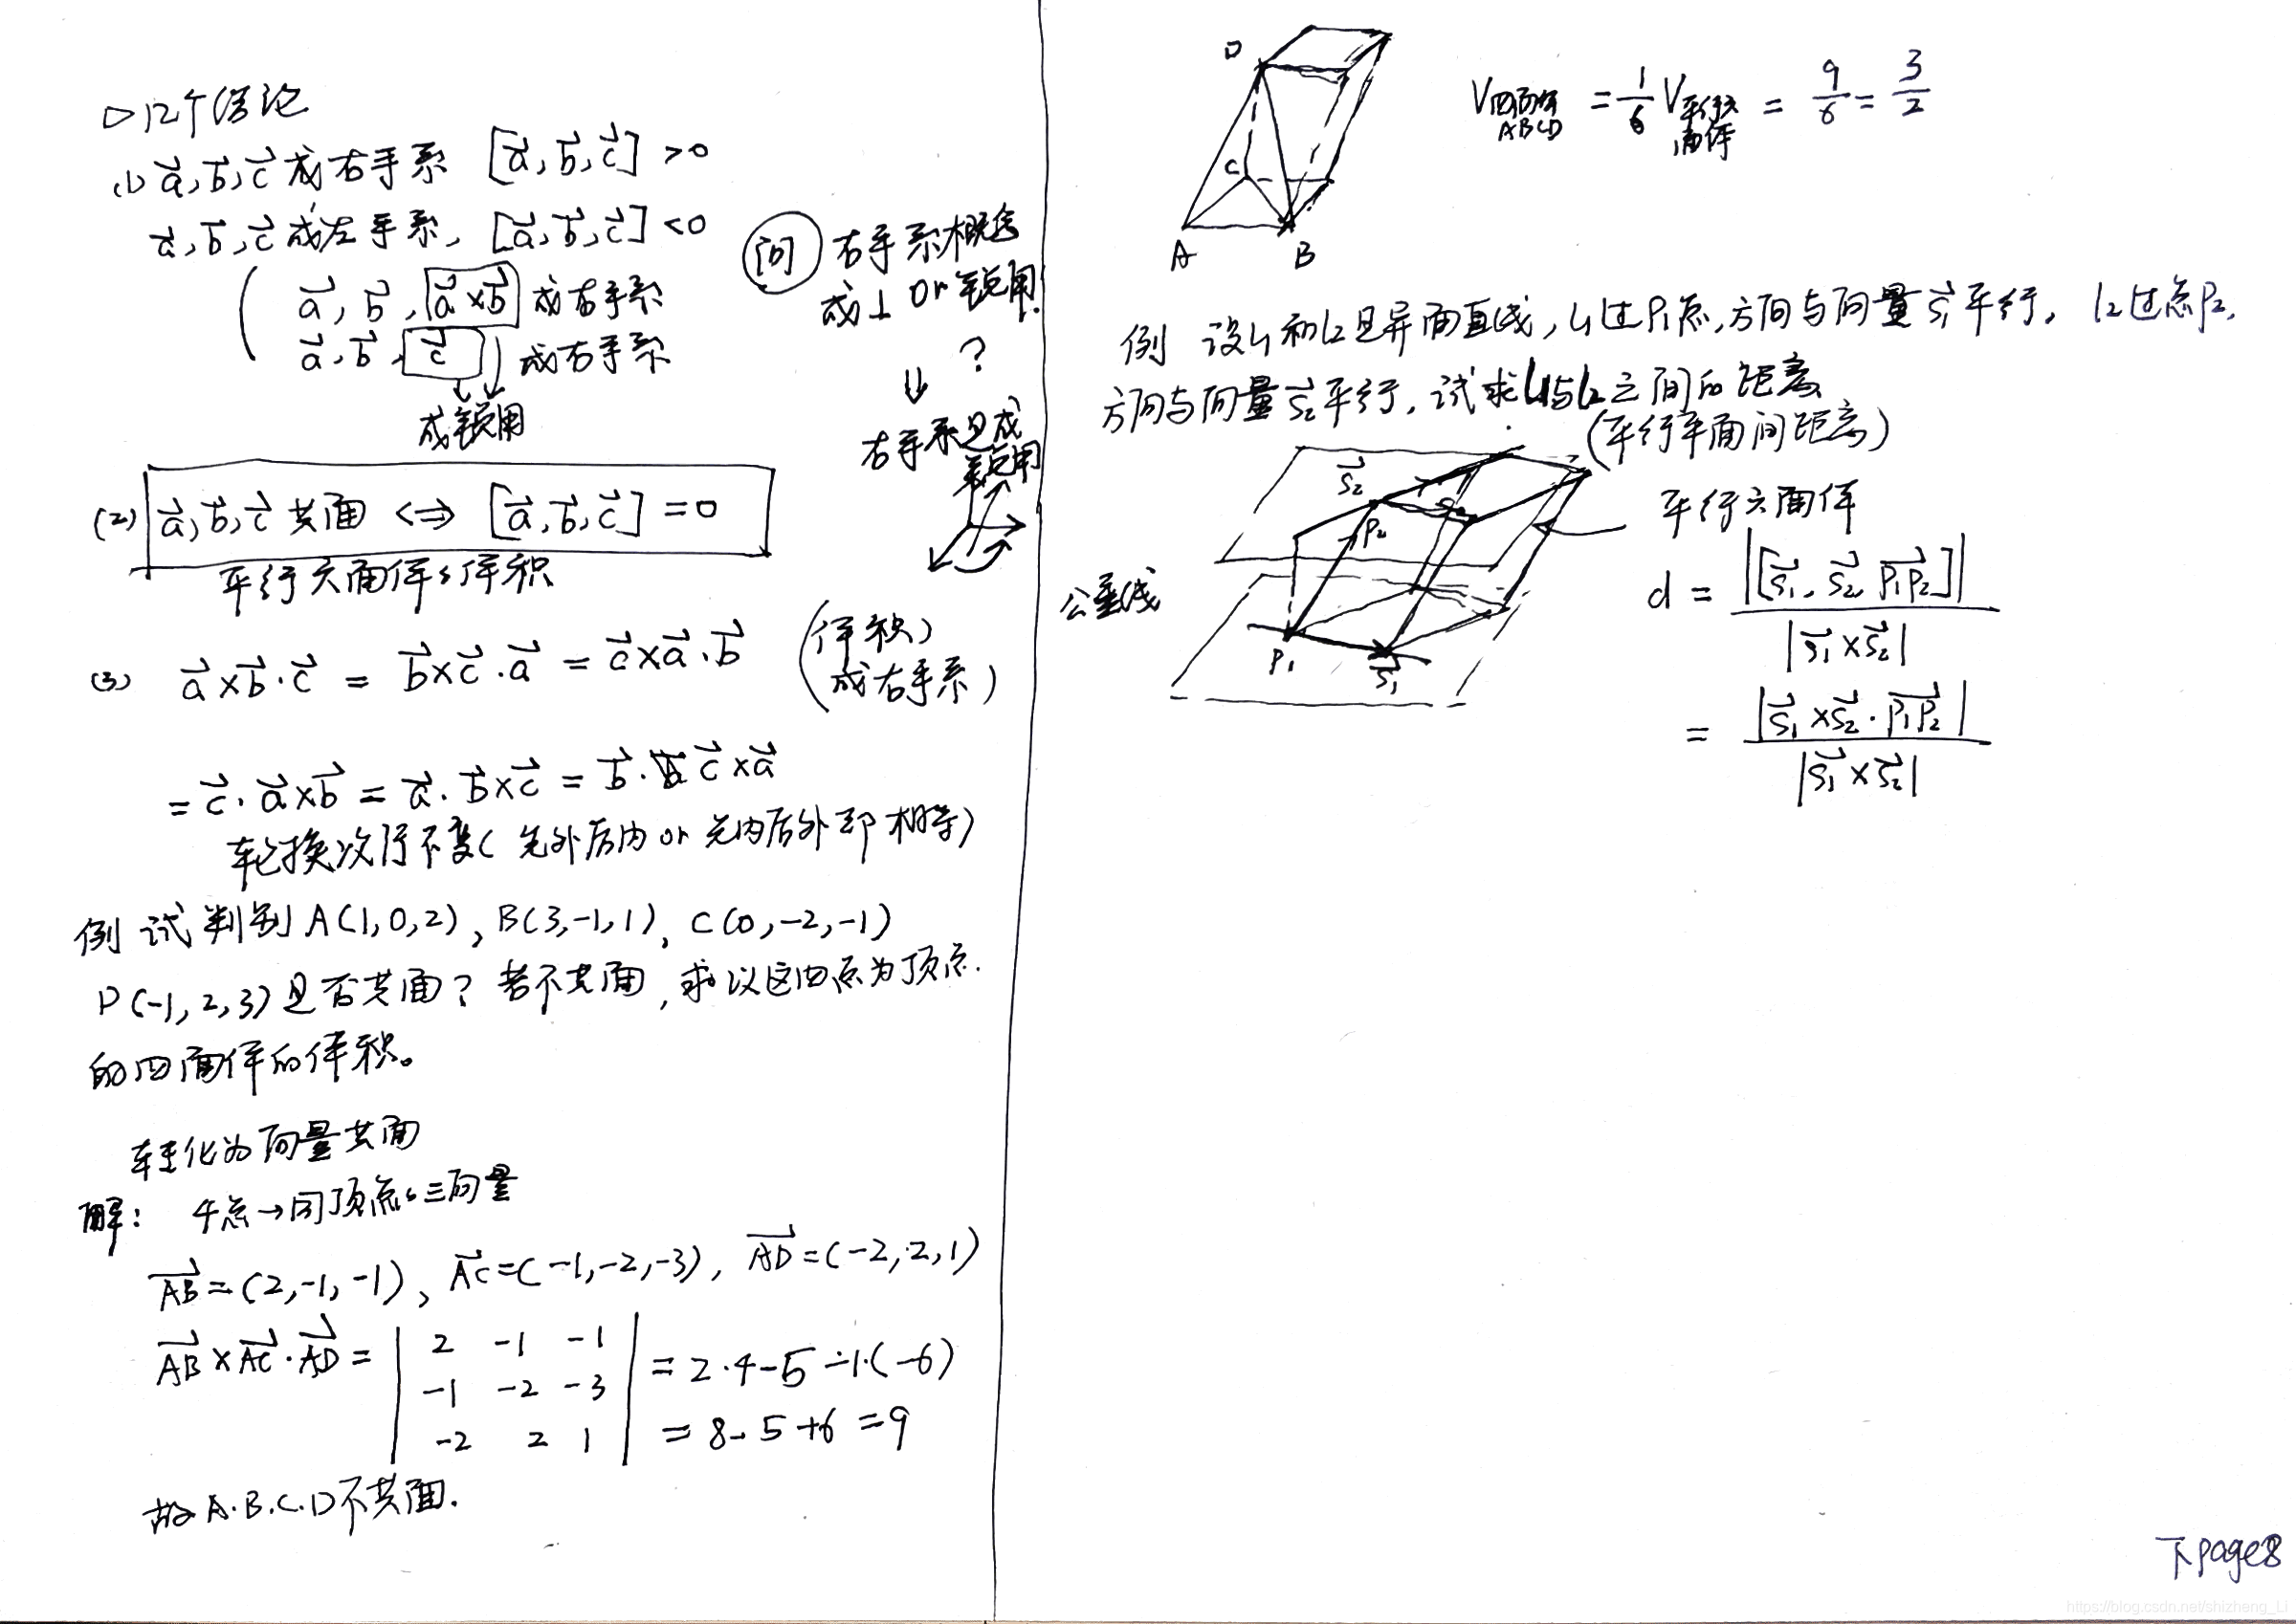 ▷ 几个结论
(1) a⃗, b⃗, c⃗ 成右手系 [a⃗, b⃗, c⃗] >0
a⃗, b⃗, c⃗ 成左手系, [a⃗, b⃗, c⃗] <0
( a⃗, b⃗, a⃗×b⃗ 成右手系
a⃗, b⃗, c⃗ 成右手系
成锐角
问 右手系概念
成⊥ or 锐角.
?
⇓
右手系是成
锐角
(2) a⃗, b⃗, c⃗ 共面 <=> [a⃗, b⃗, c⃗] =0
平行六面体の体积
(3) a⃗×b⃗·c⃗ = b⃗×c⃗·a⃗ = c⃗×a⃗·b⃗ (体积)
(成右手系)
= c⃗·a⃗×b⃗ = a⃗·b⃗×c⃗ = b⃗·c⃗×a⃗
轮换次序不变( 先外后内 or 先内后外 都相等)
例 试判别 A(1,0,2), B(3,-1,1), C(0,-2,-1)
D(-1,2,3)是否共面? 若不共面, 求以这四点为顶点.
的四面体的体积。
转化为向量共面
解: 4点→同顶点の三向量
AB⃗=(2,-1,-1), AC⃗=(-1,-2,-3), AD⃗=(-2,2,1)
AB⃗×AC⃗·AD⃗= | 2 -1 -1 |
| -1 -2 -3 | = 2·4-5-1·(-6)
| -2 2 1 | = 8-5+6 =9
故A.B.C.D不共面.
D
C
A
B
V四面体ABCD = 1/6 V平行六面体 = 9/6 = 3/2
例 设l₁和l₂是异面直线, l₁过P₁点, 方向与向量s₁⃗平行, l₂过点P₂,
方向与向量s₂⃗平行, 试求l₁与l₂之间的距离
(平行平面间距离)
s₂⃗
P₂
公垂线
P₁
s₁⃗
平行六面体
d = |[s₁⃗, s₂⃗, P₁P₂⃗]| / |s₁⃗×s₂⃗|
= |s₁⃗×s₂⃗·P₁P₂⃗| / |s₁⃗×s₂⃗|
下page8
https://blog.csdn.net/shizheng_Li